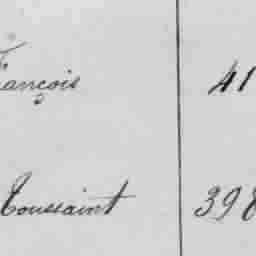 François 41
Toussaint 398